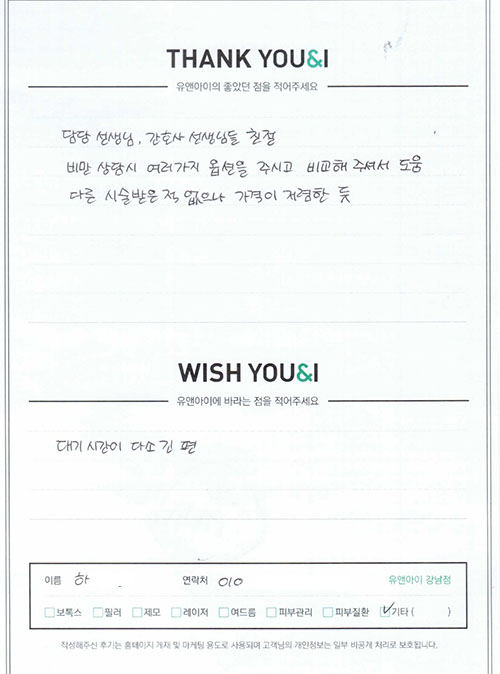 THANK YOU&I
유앤아이의 좋았던 점을 적어주세요
담당 선생님, 간호사 선생님들 친절
비만 상담시 여러가지 옵션을 주시고 비교해 주셔서 도움
다른 시술받은 적 없으나 가격이 저렴한 듯
WISH YOU&I
유앤아이에 바라는 점을 적어주세요
대기 시간이 다소 긴 편
이름 하 연락처 010 유앤아이 강남점
보톡스 필러 제모 레이저 여드름 피부관리 피부질환 기타 ( )
작성해주신 후기는 홈페이지 게재 및 마케팅 용도로 사용되며 고객님의 개인정보는 일부 비공개 처리로 보호됩니다.